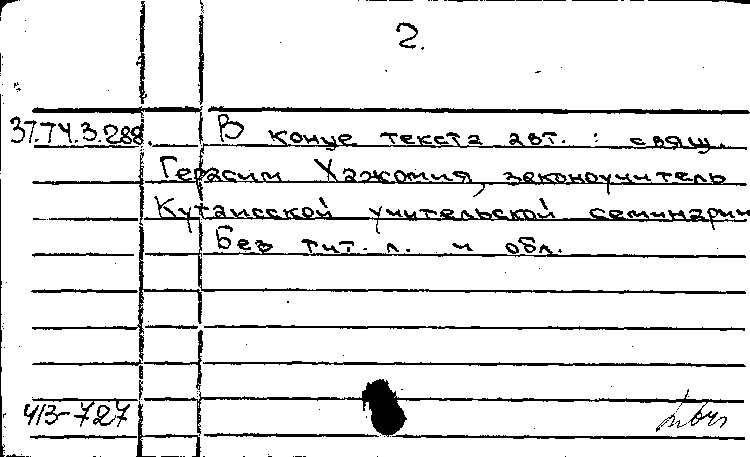 2.
37.74.3.288. В конце текста авт. : свящ.
Герасим Хажомия, законоучитель
Кутаисской учительской семинарии
Без тит. л. и обл.
413-727